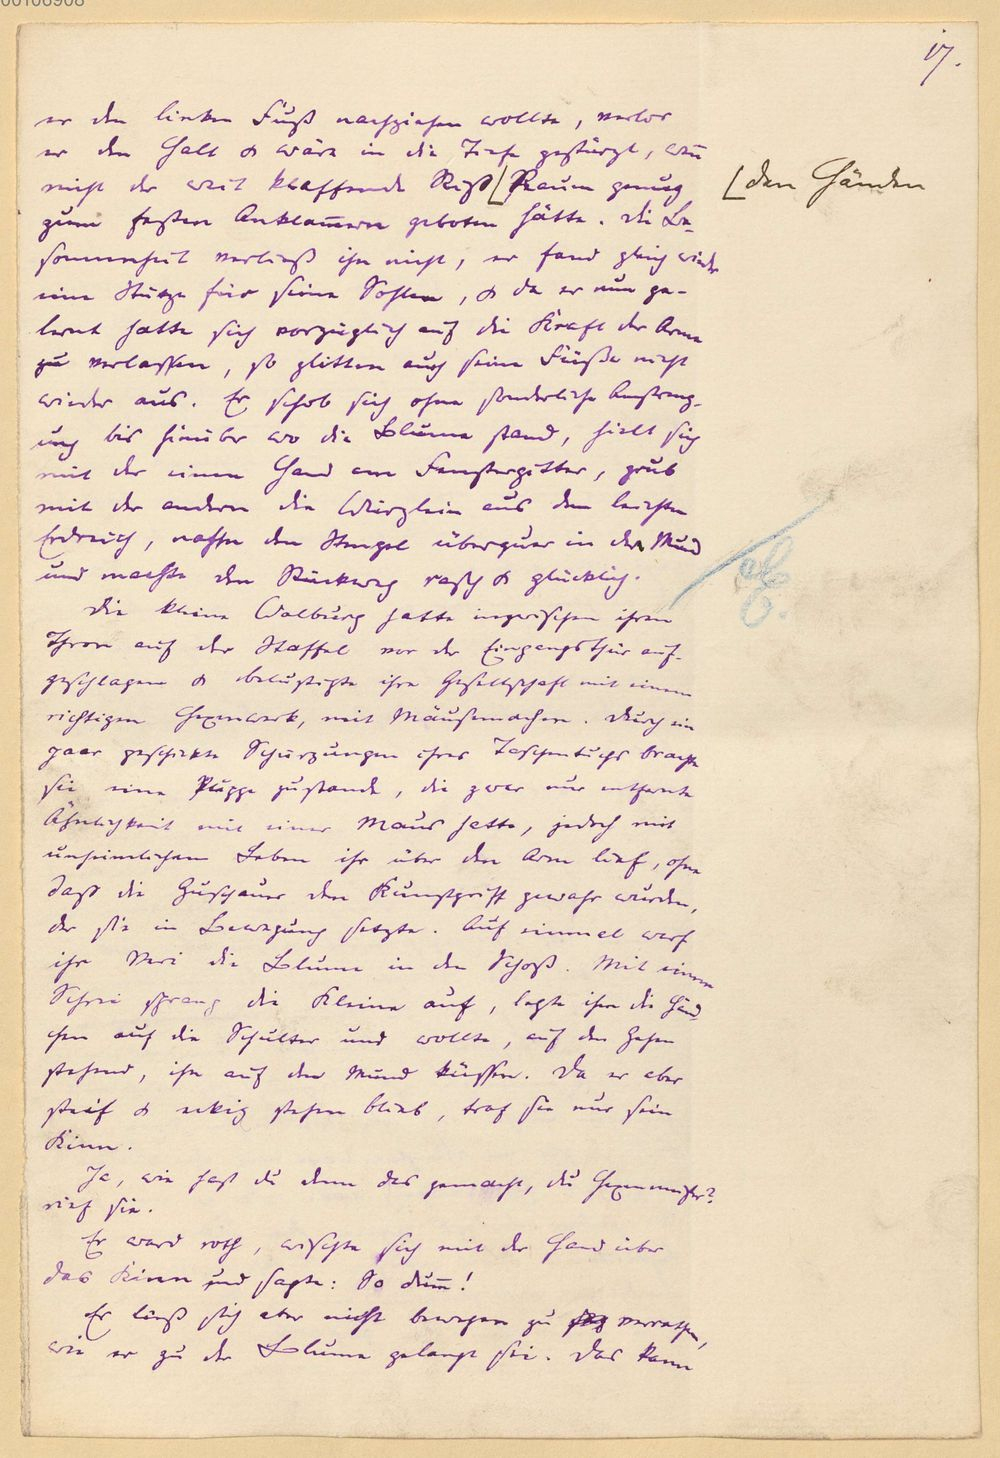 00106908
17.
er den linken Fuß nachziehen wollte, verlor
er den Halt & wäre in die Tiefe gestürzt, weñ
nicht der weit klaffende Riß [Raum genug
[den Händen
zum festen Anklam̄ern geboten hätte. Die Be-
sonnenheit verließ ihn nicht, er fand gleich wieder
eine Stütze für seine Sohlen, & da er nun ge-
lernt hatte sich vorzüglich auf die Kraft der Arme
zu verlassen, so glitten auch seine Füße nicht
wieder aus. Er schob sich ohne sonderliche Anstreng-
ung bis hinüber wo die Blume stand, hielt sich
mit der einen Hand am Fenstergitter, grub
mit der andern die Würzlein aus dem leichten
Erdreich, nahm den Stengel überquer in den Mund
und machte den Rückweg rasch & glücklich.
Die kleine Walburg hatte inzwischen ihren
Thron auf der Staffel vor der Eingangsthür auf-
geschlagen & belustigte ihre Gesellschaft mit einem
richtigen Hexenwerk, mit Mäusemachen. Durch ein
paar geschickte Schürzungen ihres Taschentuchs brachte
sie eine Puppe zustande, die zwar nur entfernte
Ähnlichkeit mit einer Maus hatte, jedoch mit
unheimlichem Leben ihr über den Arm lief, ohne
daß die Zuschauer den Kunstgriff gewahr wurden,
der sie in Bewegung setzte. Auf einmal warf
ihr Veri die Blume in den Schoß. Mit einem
Schrei sprang die Kleine auf, legte ihm die Händ-
chen auf die Schulter und wollte, auf den Zehen
stehend, ihn auf den Mund küssen. Da er aber
steif & eckig stehen blieb, traf sie nur sein
Kinn.
Ja, wie hast du denn das gemacht, du Hexenmeister?
rief sie.
Er ward roth, wischte sich mit der Hand über
das Kinn und sagte: So dum̄!
Er ließ sich aber nicht bewegen zu verrathen,
wie er zu der Blume gelangt sei. Das kann